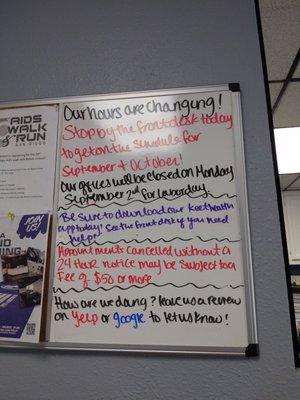 AIDS
WALK
& RUN
SAN DIEGO
JOIN US
Our hours are changing!
Stop by the front desk today
to get on the schedule for
September + October!
Our offices will be closed on Monday
September 2nd for Labor day
Be sure to download our
app today! See the front desk if you need
help!
Appointments cancelled without a
24 Hour notice may be subject to a
Fee of $50 or more
How are we doing? Leave us a review
on Yelp or google to let us know!